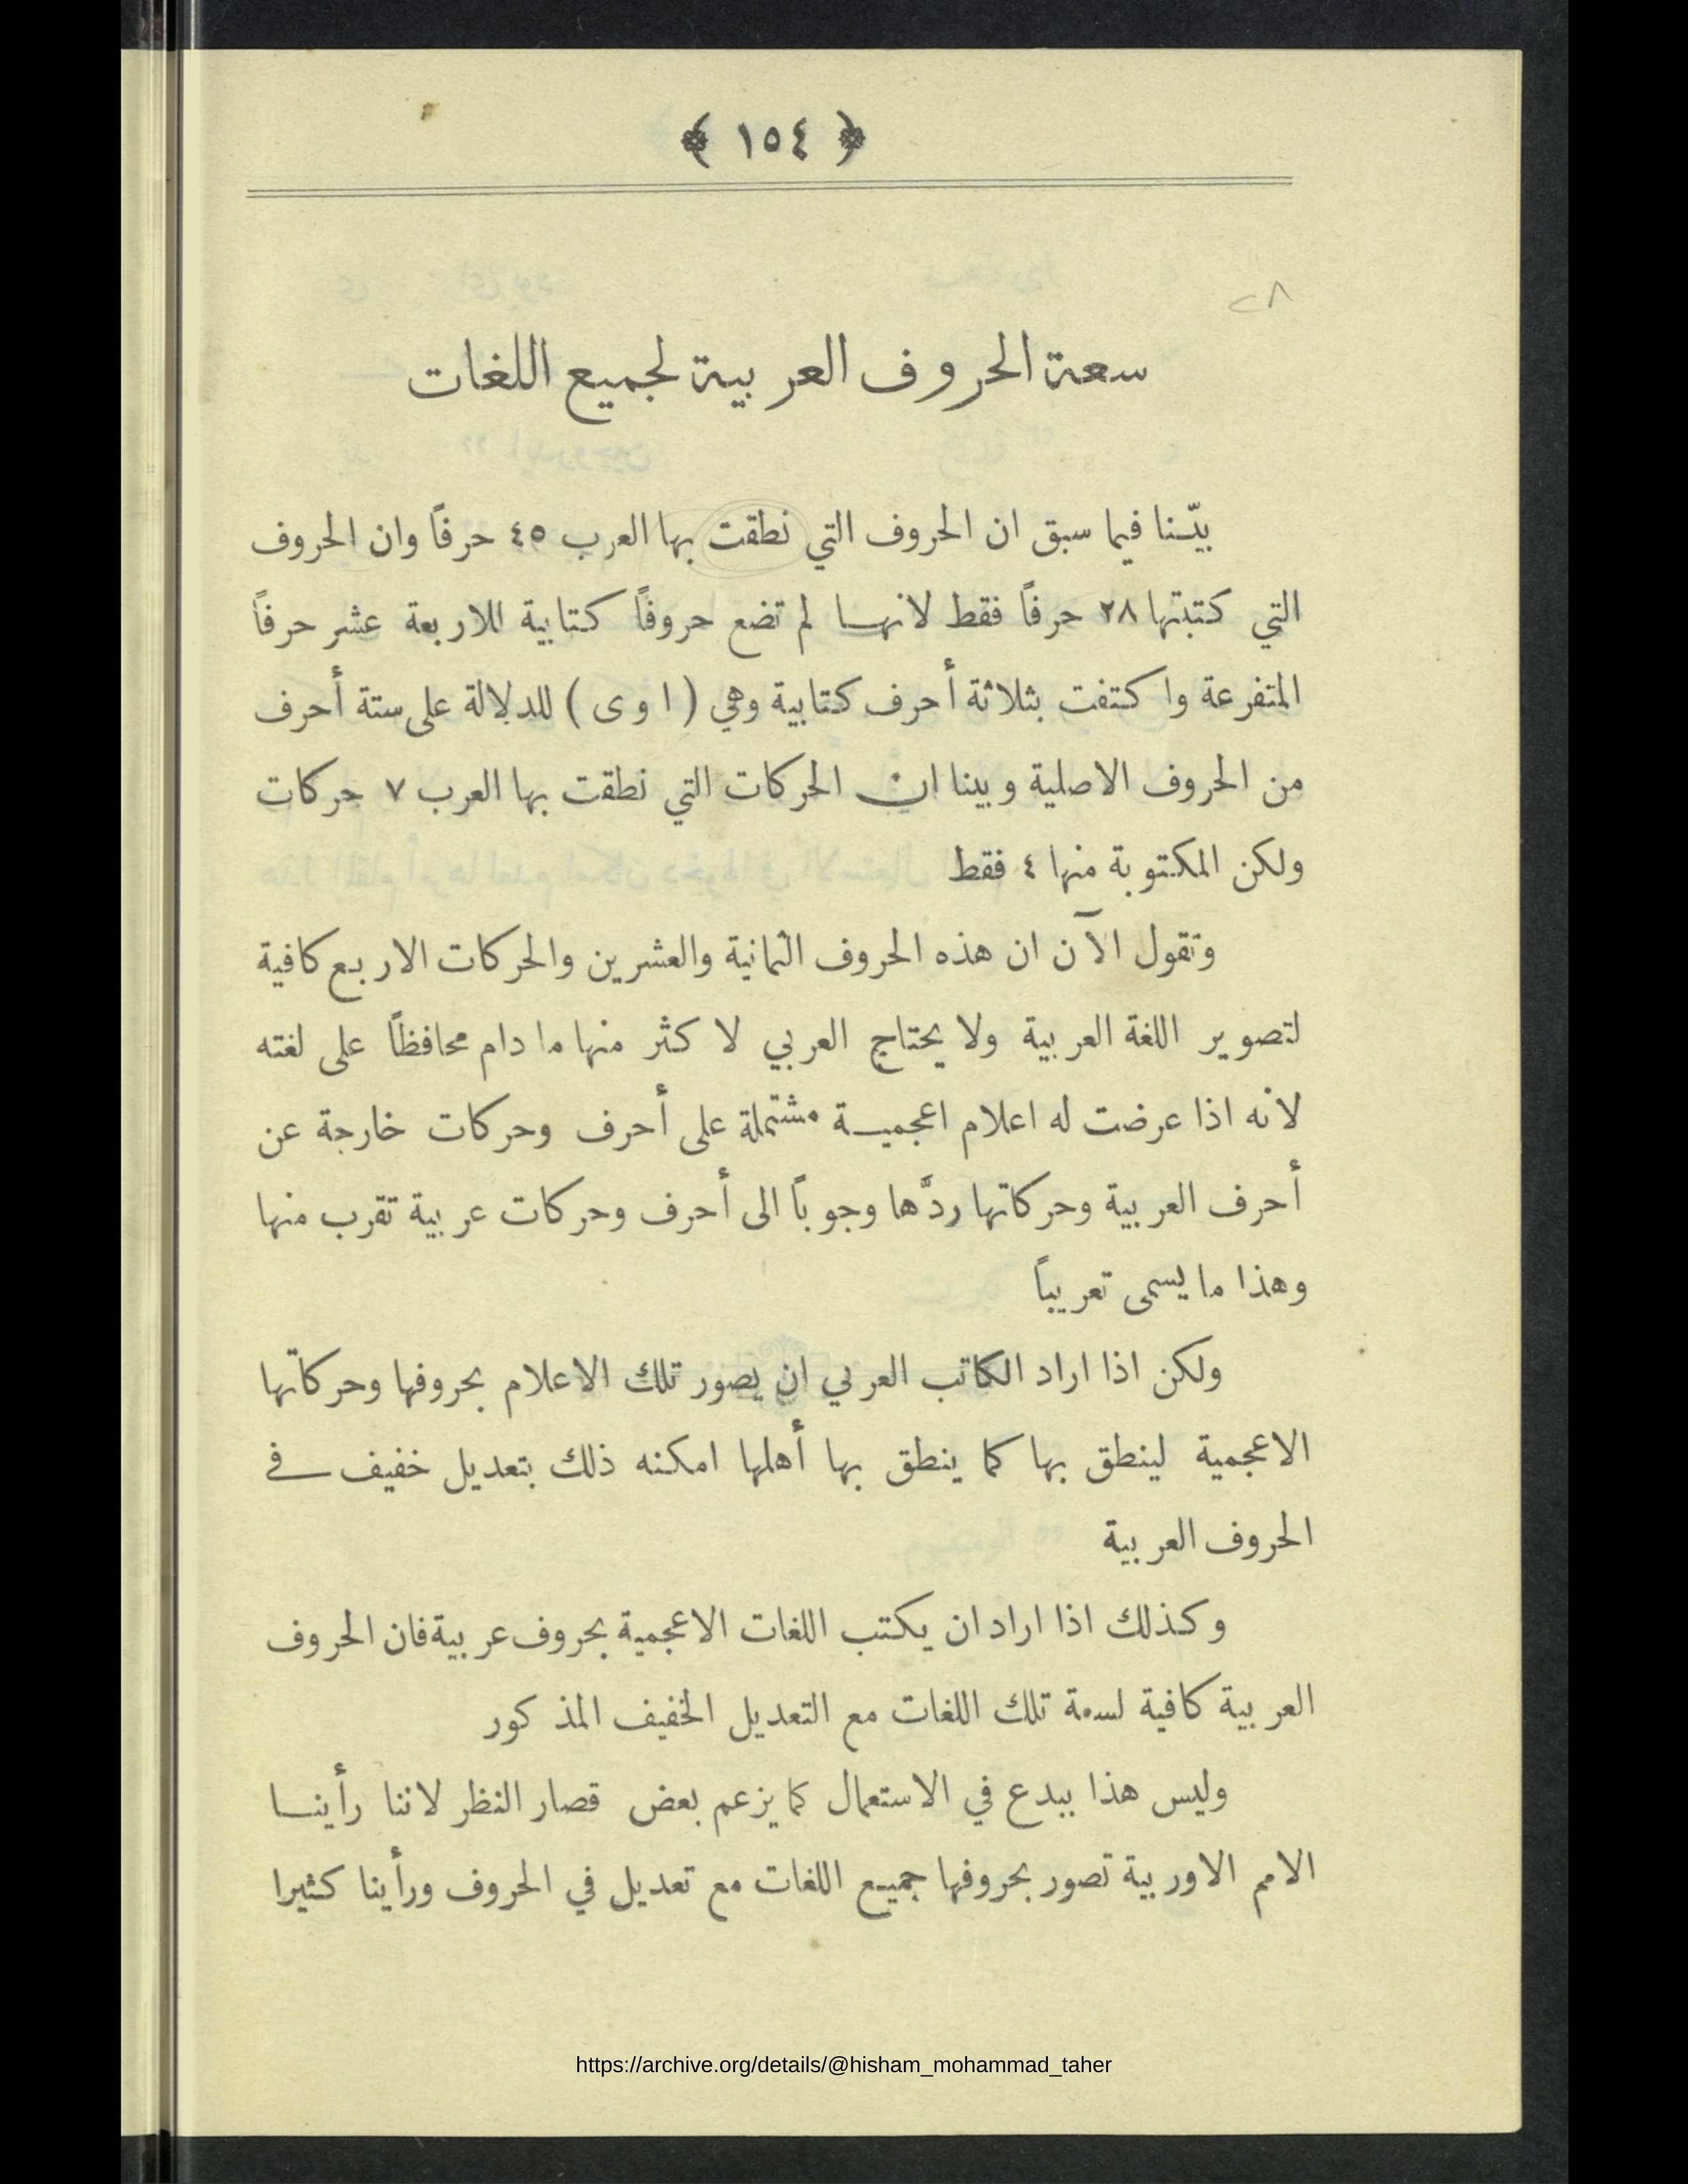 ﴿ ١٥٤ ﴾
٢٨
سعة الحروف العربية لجميع اللغات
بيّنا فيما سبق ان الحروف التي نطقت بها العرب ٤٥ حرفاً وان الحروف
التي كتبتها ٢٨ حرفاً فقط لانها لم تضع حروفاً كتابية للاربعة عشر حرفاً
المتفرعة واكتفت بثلاثة أحرف كتابية وهي ( ا و ى ) للدلالة على ستة أحرف
من الحروف الاصلية وبينا ان الحركات التي نطقت بها العرب ٧ حركات
ولكن المكتوبة منها ٤ فقط
ونقول الآن ان هذه الحروف الثمانية والعشرين والحركات الاربع كافية
لتصوير اللغة العربية ولا يحتاج العربي لاكثر منها ما دام محافظاً على لغته
لانه اذا عرضت له اعلام اعجمية مشتملة على أحرف وحركات خارجة عن
أحرف العربية وحركاتها ردَّها وجوباً الى أحرف وحركات عربية تقرب منها
وهذا ما يسمى تعريباً
ولكن اذا اراد الكاتب العربي ان يصور تلك الاعلام بحروفها وحركاتها
الاعجمية لينطق بها كما ينطق بها أهلها امكنه ذلك بتعديل خفيف في
الحروف العربية
وكذلك اذا اراد ان يكتب اللغات الاعجمية بحروف عربية فان الحروف
العربية كافية لسعة تلك اللغات مع التعديل الخفيف المذكور
وليس هذا ببدع في الاستعمال كما يزعم بعض قصار النظر لاننا رأينا
الامم الاوربية تصور بحروفها جميع اللغات مع تعديل في الحروف ورأينا كثيرا
https://archive.org/details/@hisham_mohammad_taher